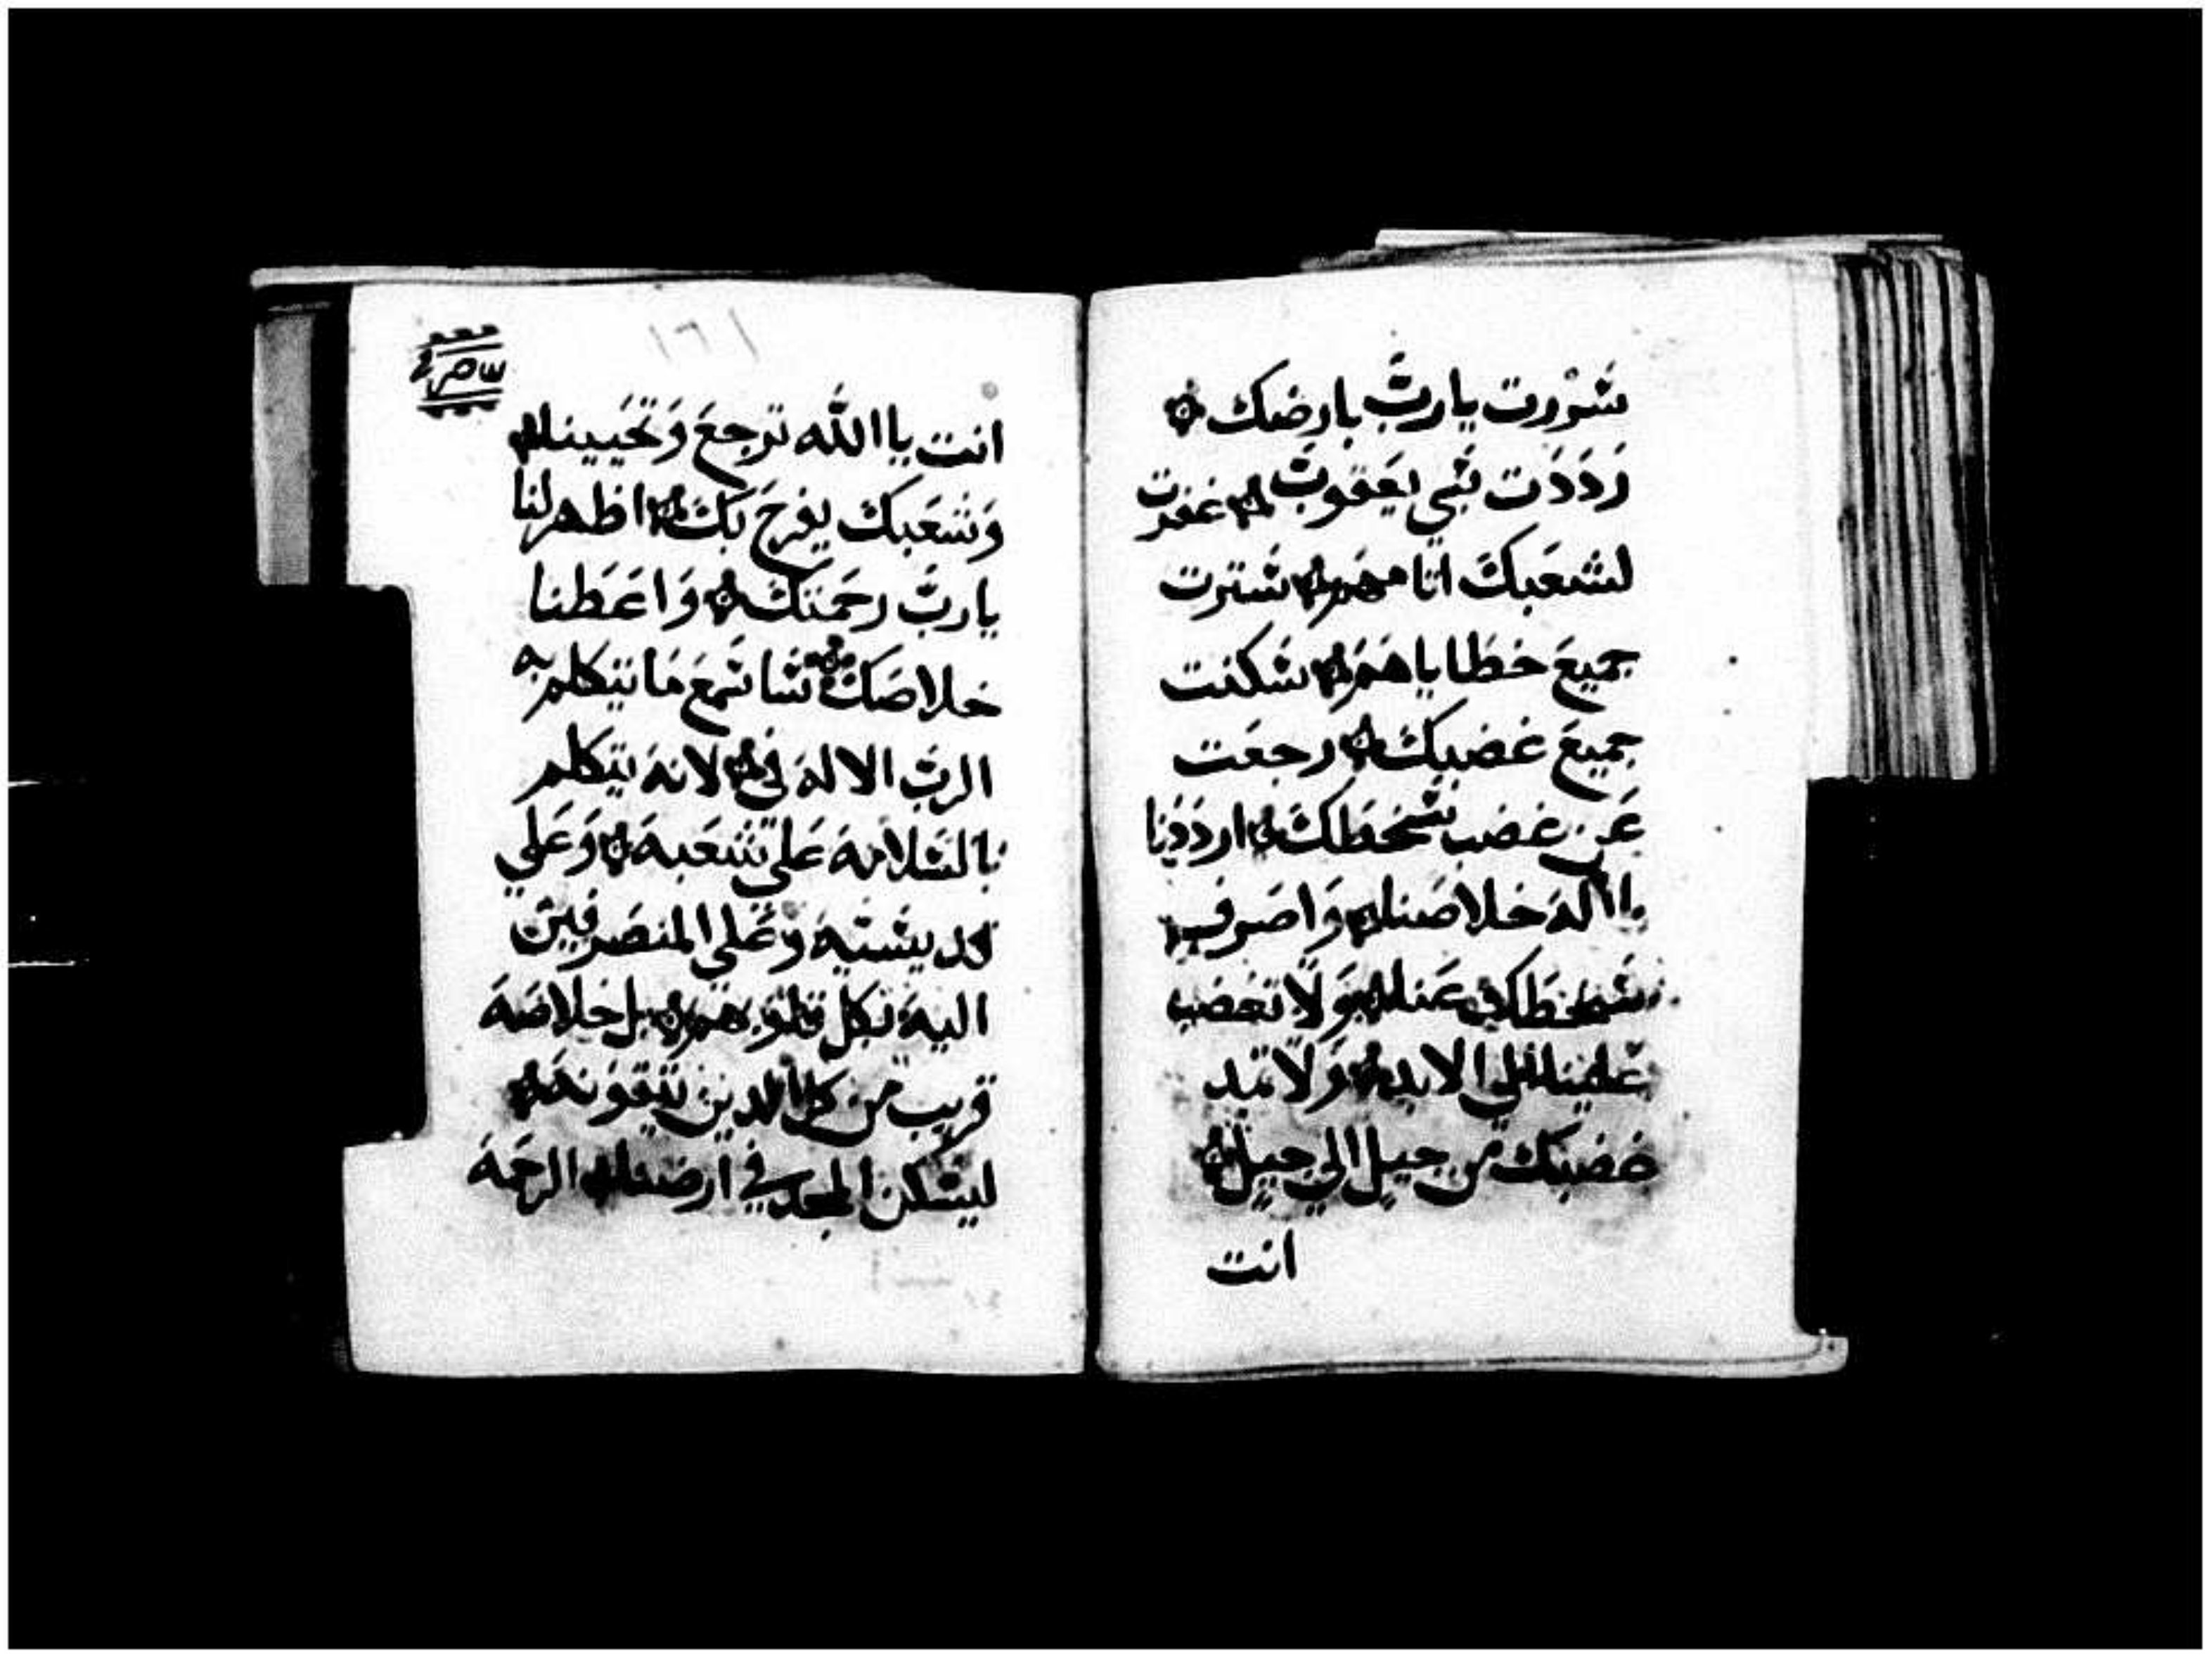 سررت يارب بارضك
رددت سبي يعقوب غفرت
لشعبك اثامهم سترت
جميع خطاياهم سكنت
جميع غضبك رجعت
عن غضب سخطك ارددنا
يا اله خلاصنا واصرف
سخطك عنا ولا تغضب
علينا الي الابد ولا تمد
غضبك من جيل الي جيل
انت
١٦١
انت ياالله ترجع وتحيينا
وشعبك يفرح بك اظهر لنا
يارب رحمتك واعطنا
خلاصك سااسمع ما يتكلم به
الرب الاله في لانه يتكلم
بالسلامه علي شعبه وعلي
قديسيه وعلي المنصرفين
اليه بكل قلوبهم بل خلاصه
قريب من كل الذين يتقونه
ليسكن المجد في ارضنا الرحمه